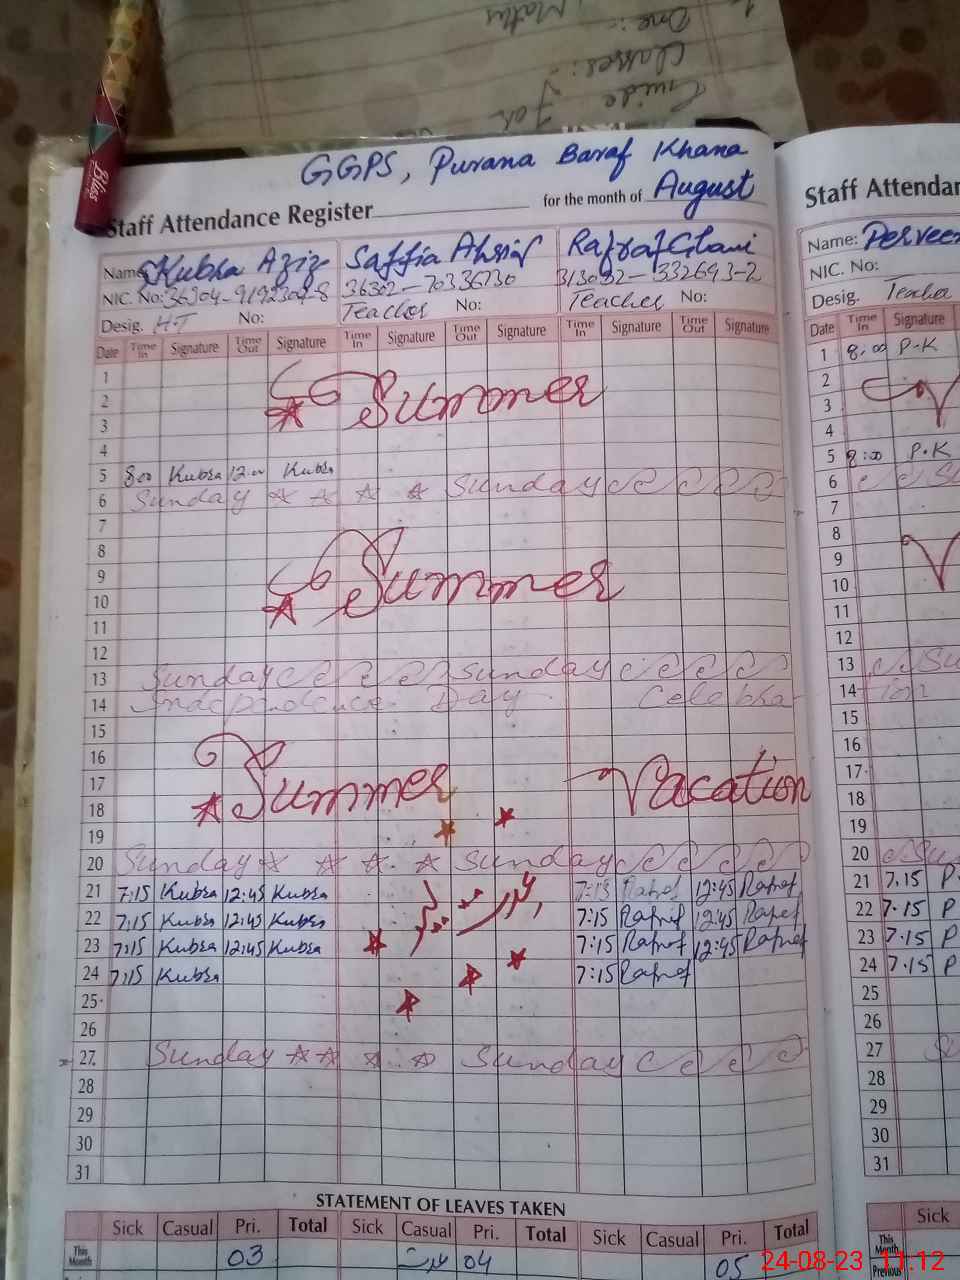 Maths
One:
Classes:
Guide For
Bliss
GGPS, Purana Baraf Khana
Staff Attendance Register for the month of August
Name: Kubra Aziz Saffia Ahsraf Rafraf Ghani
NIC. No: 36304-9192304-8 36302-7033673-0 313032-1332693-2
Desig. H.T No: Teacher No: Teacher No:
Date Time In Signature Time Out Signature Time In Signature Time Out Signature Time In Signature Time Out Signature
1
2 Summer
3
4
5 8:00 Kubra 12:00 Kubra
6 Sunday Sunday
7
8
9 Summer
10
11
12
13 Sunday Sunday
14 Independence Day Celebra
15
16
17 Summer Vacation
18
19
20 Sunday Sunday
21 7:15 Kubra 12:45 Kubra 7:15 Rafraf 12:45 Rafraf
22 7:15 Kubra 12:45 Kubra 7:15 Rafraf 12:45 Rafraf
23 7:15 Kubra 12:45 Kubra 7:15 Rafraf 12:45 Rafraf
24 7:15 Kubra 7:15 Rafraf
25
26
27 Sunday Sunday
28
29
30
31
STATEMENT OF LEAVES TAKEN
Sick Casual Pri. Total Sick Casual Pri. Total Sick Casual Pri. Total
This Month 03 عدت 04 05
Staff Attendan
Name: Perveen
NIC. No:
Desig. Teacher
Date Time In Signature
1 8:00 P.K
2
3
4
5 8:00 P.K
6 Su
7
8
9
10
11
12
13 Su
14 tion
15
16
17
18
19
20 Su
21 7.15 P
22 7.15 P
23 7.15 P
24 7.15 P
25
26
27 Su
28
29
30
31
Sick
This Month
Previous
24-08-23 11:12